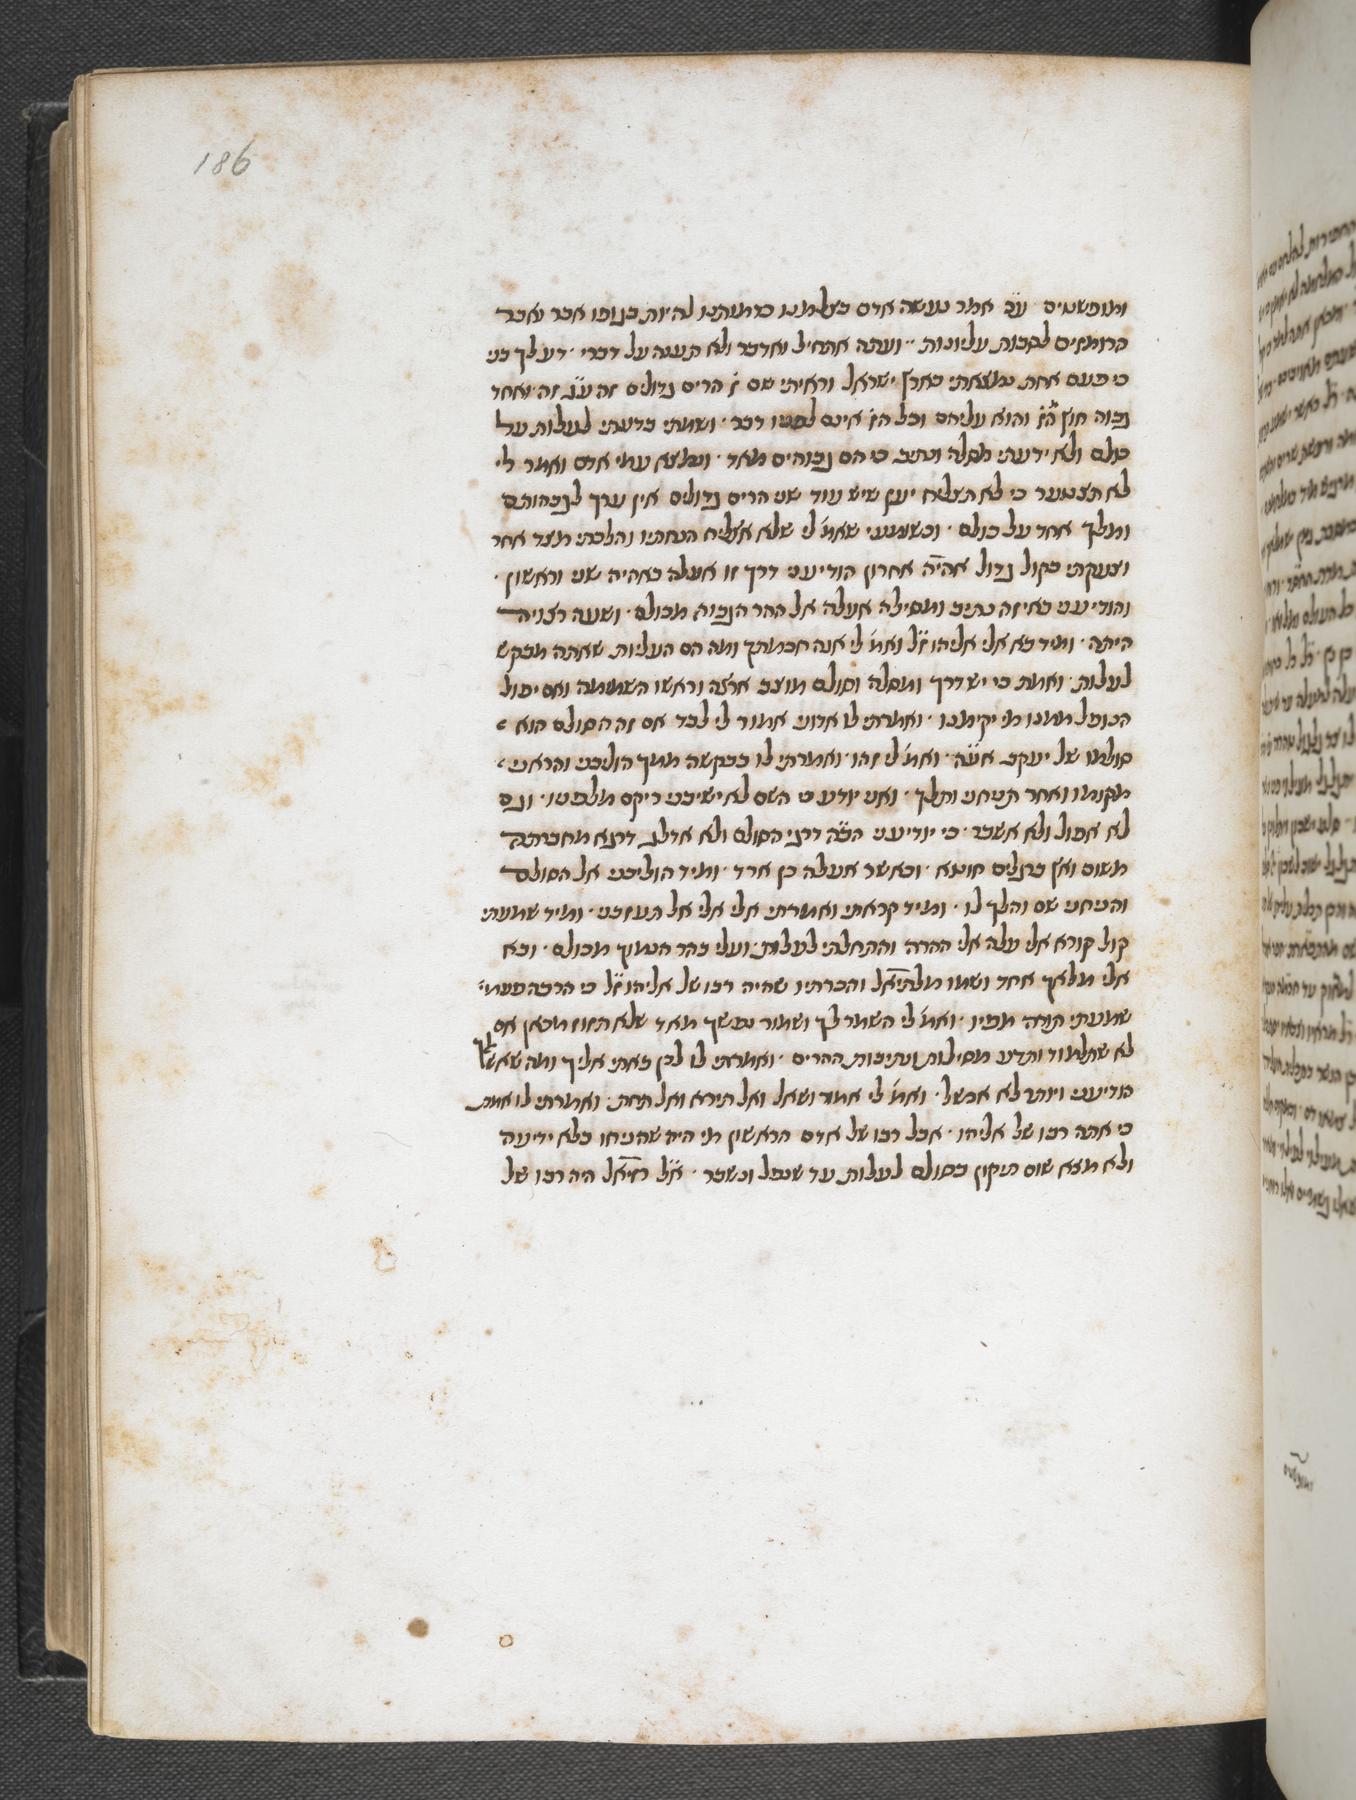 186
ומופשטים ע״כ אמר נעשה אדם בצלמנו כדמותנו להיות בגופו אבר ואבר
הרומזים לסבות עליונות ׃ ועתה אתחיל ואדבר ולא תענה על דברי ׳ דע לך בני
כי פעם אחת נמצאתי בארץ ישראל וראיתי שם ז׳ הרים גדולים זה ע״ג זה ואחד
גבוה חוץ הז׳ והוא עליהם וכל הז׳ אינם לפניו דבר ׳ ושמתי בדעתי לעלות על
כולם ולא ידעתי מסלה ונתיב כי הם גבוהים מאד ׳ ונמצא עמי אדם ואמר לי
לא תצטער כי לא תצלח יען שיש עוד שני הרים גדולים אין ערך לגבהותם
ומלך אחד על כולם ׳ וכשמעי שאמ׳ לי שלא אצליח הנחתיו והלכתי מצד אחר
וצעקתי בקול גדול אהיה אחרון הודיעני דרך זו אעלה באהיה שני וראשון ׳
והודיעני באיזה נתיב ומסילה אעלה אל ההר הגבוה מכולם ׳ ושעה רצויה
היתה ׳ ומיד בא אלי אליהו ז״ל ואמ׳ לי אנה חכמתך ומה הם העליות שאתה מבקש
לעלות ׳ ואמת כי יש דרך ומסלה וסולם מוצב ארצה וראשו השמימה ואם יפול
הנופל ממנו מי יקימנו ׳ ואמרתי לו אדוני אמור לי לבד אם זה הסולם הוא
סולמו של יעקב א״עה ׳ ואמ׳ לי זהו ׳ ואמרתי לו בבקשה ממך הוליכני והראני
מקומו ואחר תניחני ותלך ׳ ואני יודע כי השם לא ישיבני ריקם מלפניו ׳ וגם
לא אפול ולא אשבר ׳ כי יודיעני הב״ה דרגי הסולם ולא אדלג דרגא מחברתה
משום ואץ ברגלים חוטא ׳ וכאשר אעלה כן ארד ׳ ומיד הוליכני אל הסולם
והניחני שם והלך לו ׳ ומיד קראתי ואמרתי אלי אלי אל תעזבני ׳ ומיד שמעתי
קול קורא אלי עלה אלי ההרה והתחלתי לעלות ועלי בהר הנמוך מכולם ׳ ובא
אלי מלאך אחד ושמו מלתיאל והכרתיו שהיה רבו של אליהו ז״ל כי הרבה פעמי׳
שמעתי תורה מפיו ׳ ואמ׳ לי השמר לך ושמור נפשך מאד שלא תזוז מכאן אם
לא שתלמוד ותדע מסילות ונתיבות ההרים ׳ ואמרתי לו לכן באתי אליך ומה שאשאלך
הודיעני ויותר לא אכשל ׳ ואמ׳ לי אמור ושאל ואל תירא ואל תחת ׳ ואמרתי לו אמת
כי אתה רבו של אליהו ׳ אבל רבו של אדם הראשון מי היה שהניחו בלא ידיעה
ולא מצא שום תיקון בסולם לעלות עד שנפל ונשבר ׳ א״ל רזיאל היה רבו של